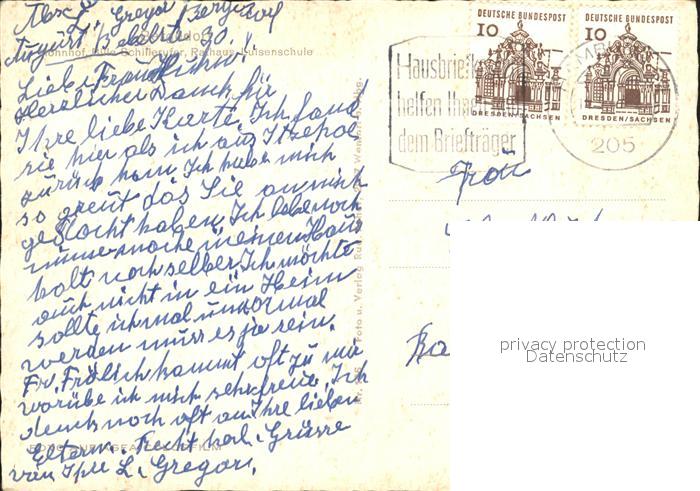 Absc. L. Gregor Bergedorf
August Bebelstr. 90.
Liebe Frau Kühn!
Herzlichen Dank für
Ihre liebe Karte. Ich fand
sie hier als ich aus Itzehoe
zurück kam. Ich habe mich
so gefreut das Sie an mich
gedacht haben. Ich lebe noch
immer noch in meinen Haus
halt noch selber. Ich möchte
auch nicht in ein Heim
sollte ich mal unnormal
werden muss es ja sein.
Fr. Frölich kommt oft zu mir
worübe ich mich sehr freue. Ich
denk noch oft an Ihre lieben
Eltern. Recht herl. Grüsse
von Ihre L. Gregor.
DEUTSCHE BUNDESPOST
10
DRESDEN/SACHSEN
DEUTSCHE BUNDESPOST
10
DRESDEN/SACHSEN
Hausbriefk
helfen Ihnen
dem Briefträger
205
Frau
privacy protection
Datenschutz